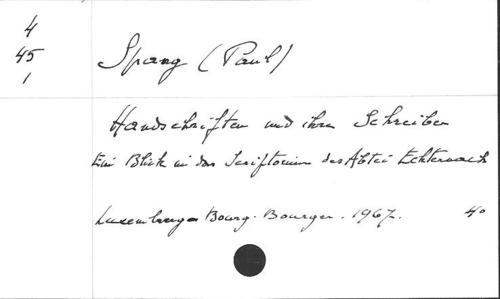 4
45
1
Spang (Paul)
Handschriften und ihre Schreiber
Ein Blick in das Scriptorium der Abtei Echternach
Luxemburg Bourg-Bourger. 1967. 4°